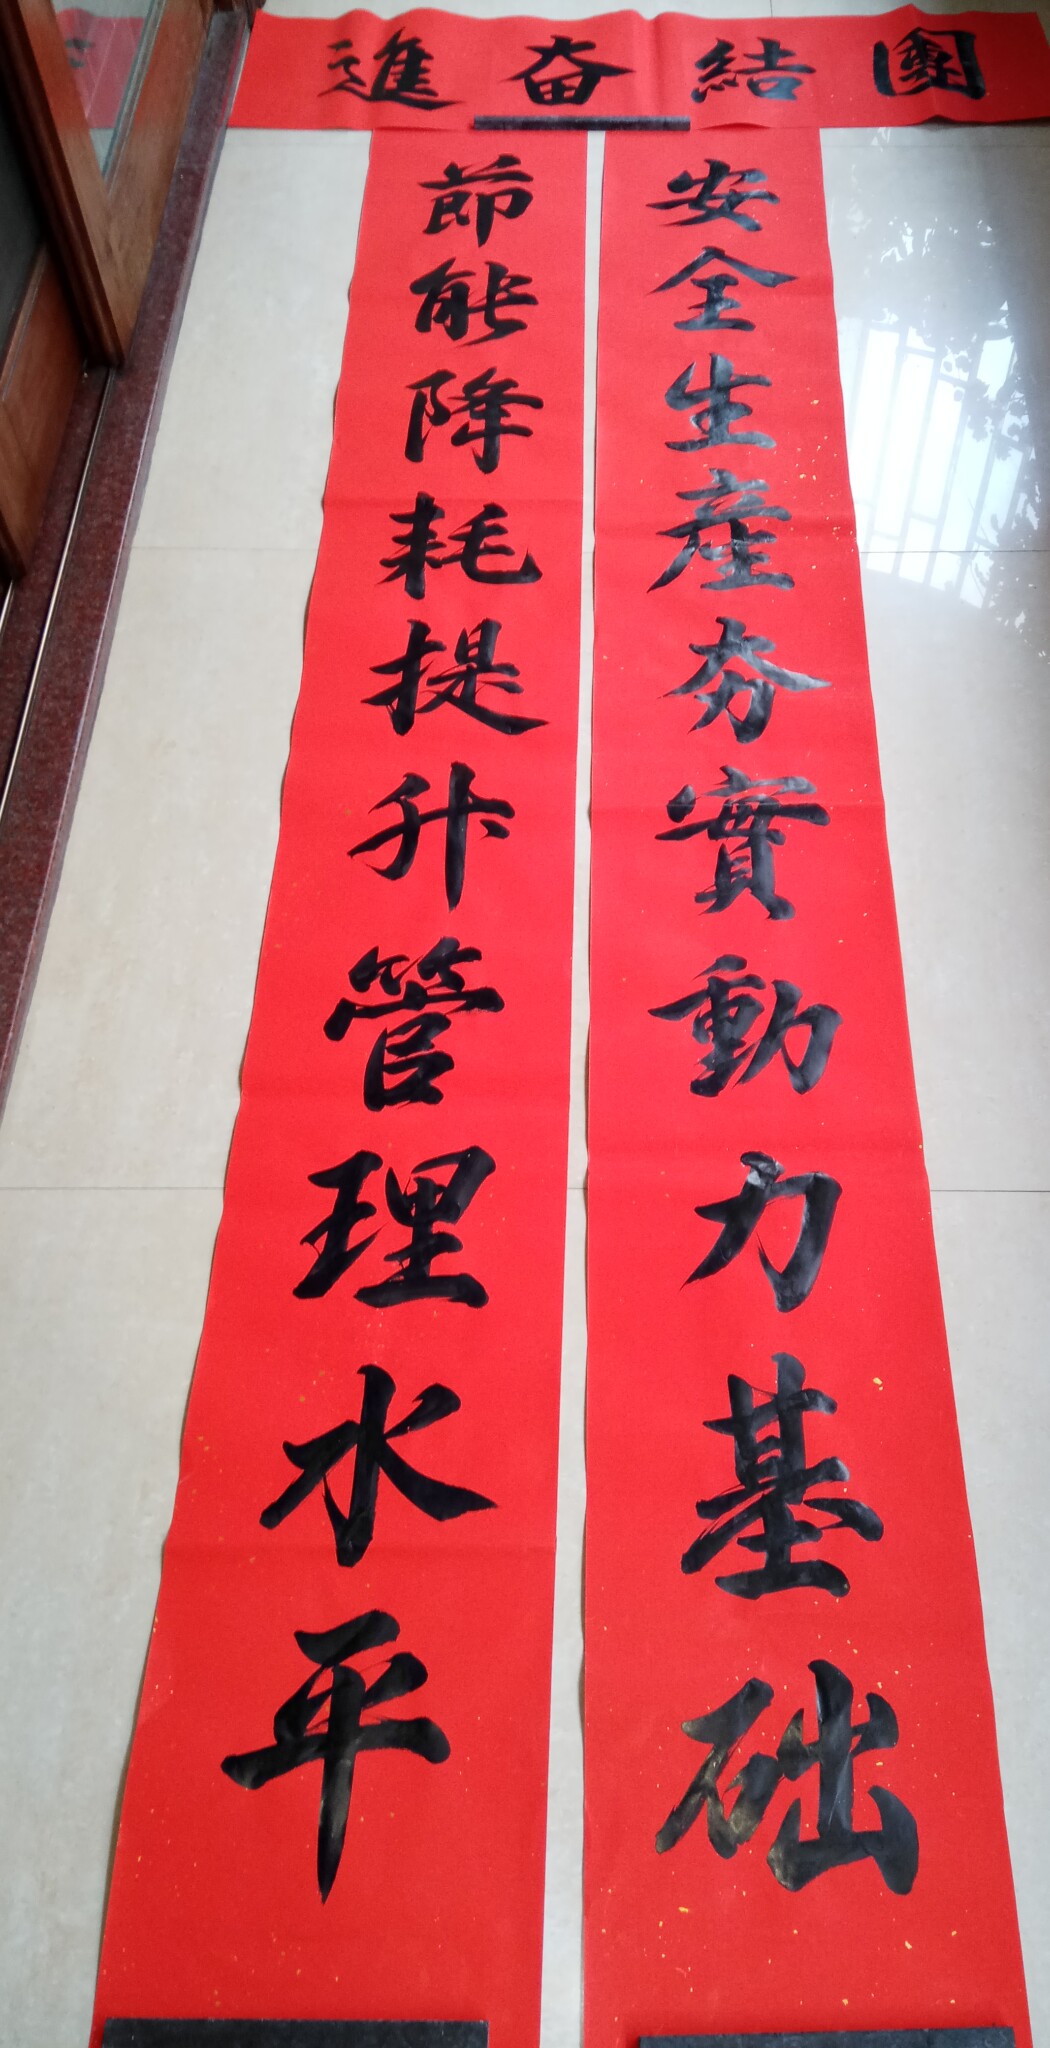 團結奋進
安全生產夯實動力基础
節能降耗提升管理水平